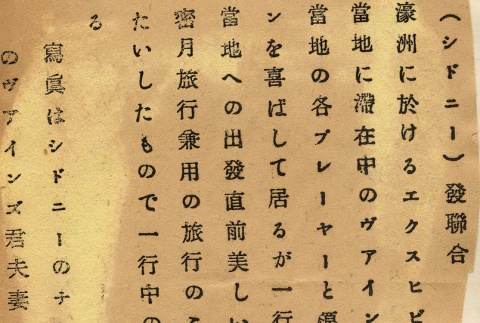 （シドニー）發聯合
濠洲に於けるエクスヒビ
當地に滯在中のヴアイン
當地の各プレーヤーと
ンを喜ばして居るが一行
當地への出發直前美しい
密月旅行兼用の旅行のこ
たいしたもので一行中の
る
寫眞はシドニーのテ
のヴアインズ君夫妻